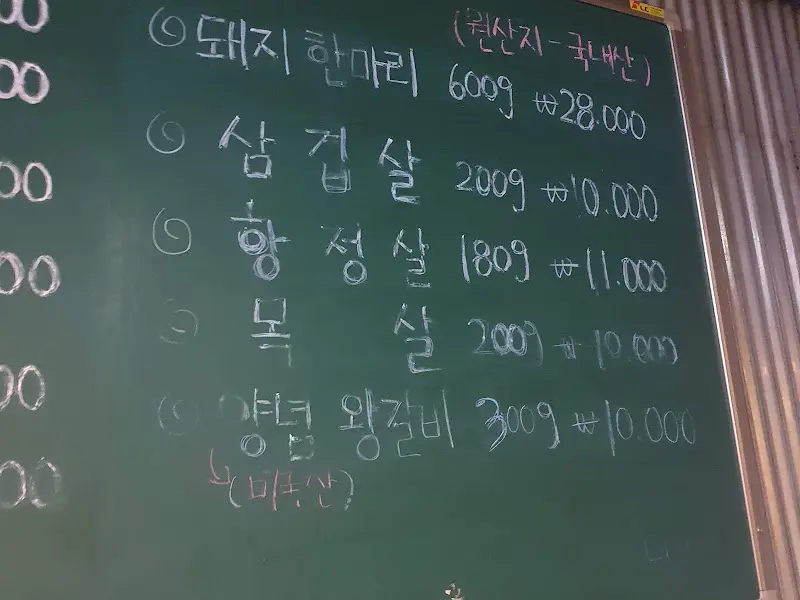 돼지 한마리 600g ₩28.000
(원산지-국내산)
삼 겹 살 200g ₩10.000
항 정 살 180g ₩11.000
목 살 200g ₩10.000
양념 왕갈비 300g ₩10.000
(미국산)
00
00
00
00
00
00